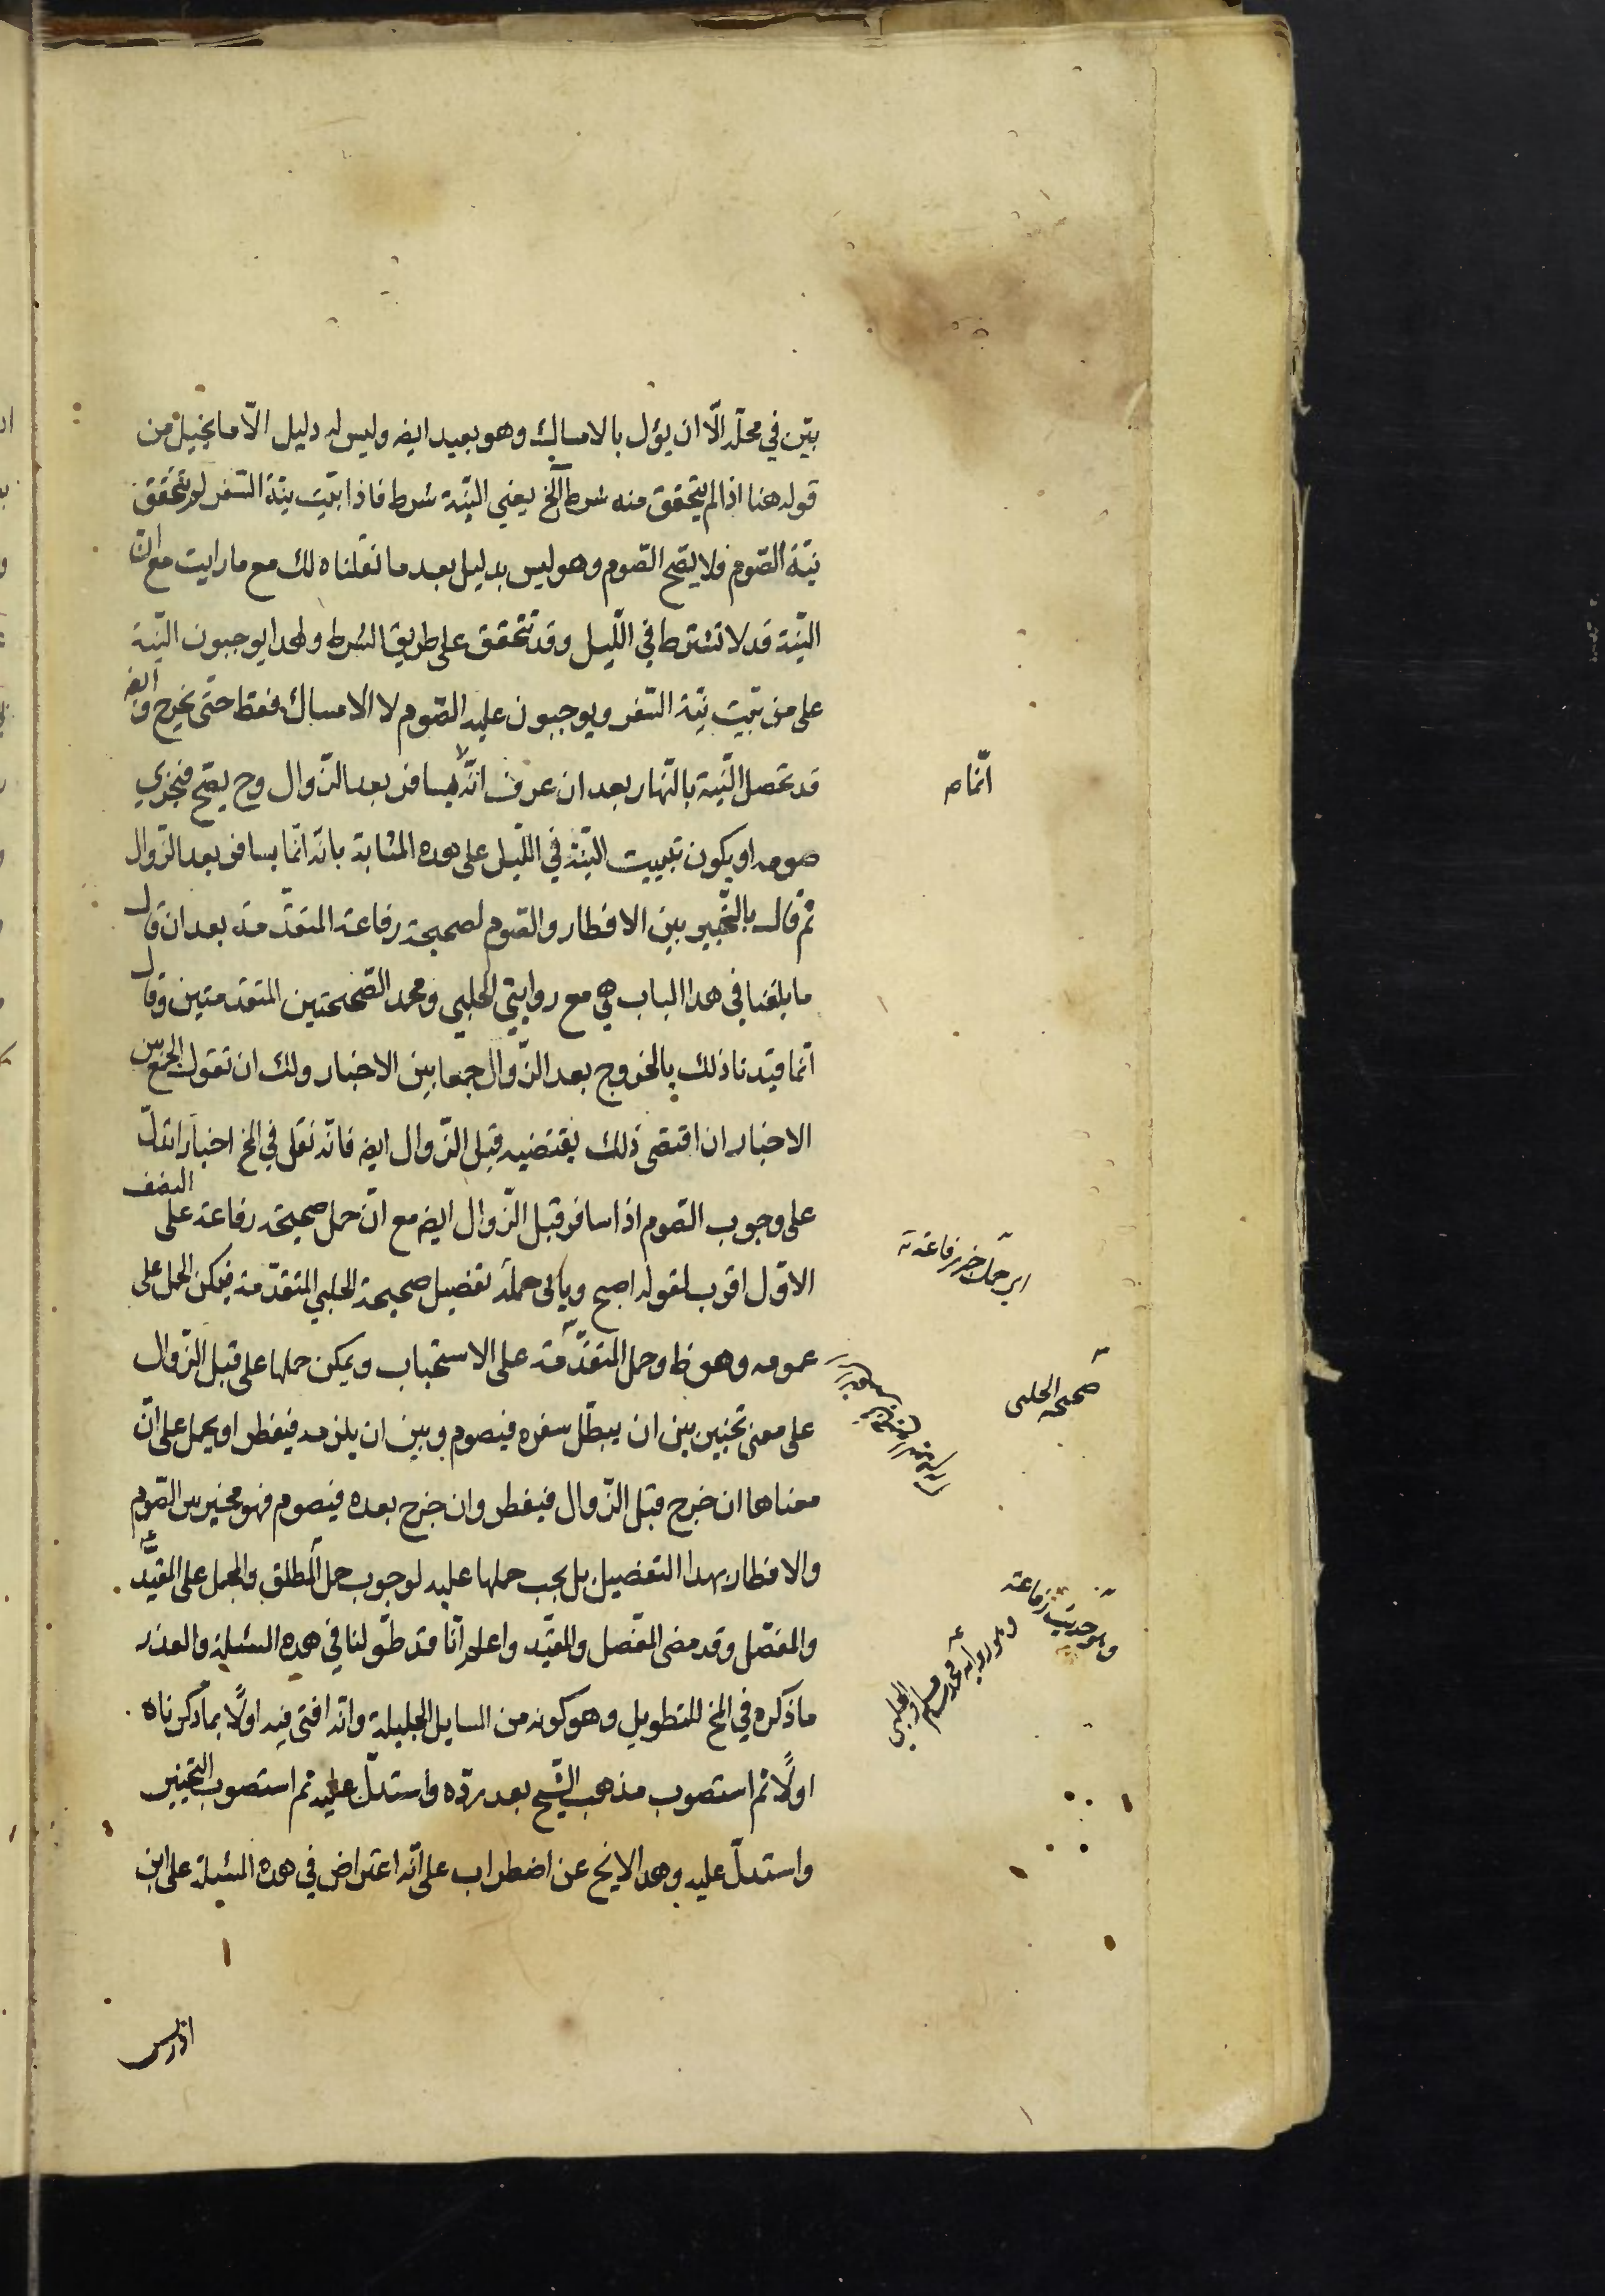 بيّن في محلّه الّا ان يؤل بالامساك وهو بعيد ايضه وليس له دليل الّا ما يخيل من
قوله هنا اذا لم يتحقق منه شرط الخ يعني النيّة شرط فاذا بيّت نيّة السّفر لم يتحقق
نيّة الصّوم فلا يصّح الصّوم وهو ليس بدليل بعد ما نقلناه لك مع ما رايت مع انّ
النيّة قد لا تشترط في اللّيل وقد تتحقق على طريق الشرط ولهذا يوجبون النيّة
على من بيّت نيّة السّفر ويوجبون عليه الصّوم لا الامساك فقط حتى يخرج و ايضه
قد تحصل النّية بالنّهار بعد ان عرف انّه لا يسافر بعد الزّوال وح يصّح فيجزي
صومه او يكون تبييت النيّة في اللّيل على هذه المثابة بانّه انّما يسافر بعد الزّوال
ثم قال بالتّخيير بين الافطار والصّوم لصحيحة رفاعة المتقدّمة بعد ان قال
ما بلغنا في هذا الباب هي مع روايتي الحلبي ومحمد الصّحيحتين المتقدمتين وقال
انّما قيّدنا ذلك بالخروج بعد الزّوال جمعا بين الاخبار ولك ان تقول الجمع بين
الاخبار ان اقتضى ذلك يقتضيه قبل الزّوال ايضه فانّه نقل في لخ اخبارا تدلّ
على وجوب الصّوم اذا سافر قبل الزّوال ايضه مع انّ حمل صحيحة رفاعة على النصف
الاوّل اقرب لقوله اصبح ويأبى حمله تفصيل صحيحة الحلبي المتقدّمة فيمكن الحمل على
عمومه وهو ظ وحمل المتقدّمة على الاستحباب ويمكن حملها على قبل الزّوال
على معنى تخيير بين ان يبطّل سفره فيصوم وبين ان يلزمه فيفطر او يحمل على انّ
معناها ان خرج قبل الزّوال فيفطر وان خرج بعده فيصوم فهو مخير بين الصّوم
والافطار بهذا التفضيل بل يجب حملها عليه لوجوب حمل المطلق والمجمل على المقيّد
والمفصّل وقد مضى المفصّل والمقيّد واعلم انّا قد طوّلنا في هذه المسئلة والعذر
ما ذكره في لخ للتطويل وهو كونه من المسايل الجليلة وانّه افتى فيه اولًا بما ذكرناه
اولًا ثم استصوب مذهب الشّيخ بعد ردّه واستدلّ عليه ثم استصوب التخيير
واستدلّ عليه وهذا لا يخ عن اضطراب على انّه اعتراض في هذه المسئلة على ابن
اتمام
اى حمل خبر رفاعة
صحيحة الحلبى
وهو حديث رفاعة
وهو رواية محمد بن مسلم والحلبى
ادريس